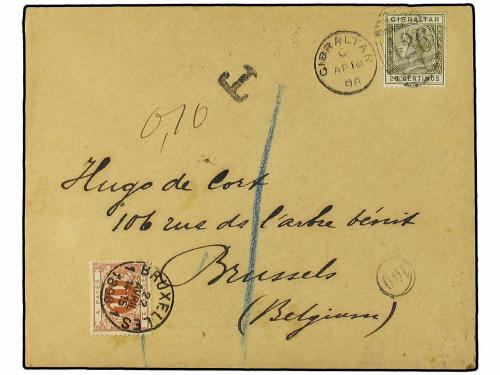 GIBRALTAR
C
AP 18
98
GIBRALTAR
26
20 CENTIMOS
T
0,10
Hugo de Cort
106 rue de l'arbre bénit
Brussels
(Belgium)
BRUXELLES 1
22
AVRIL
1898
A PAYER